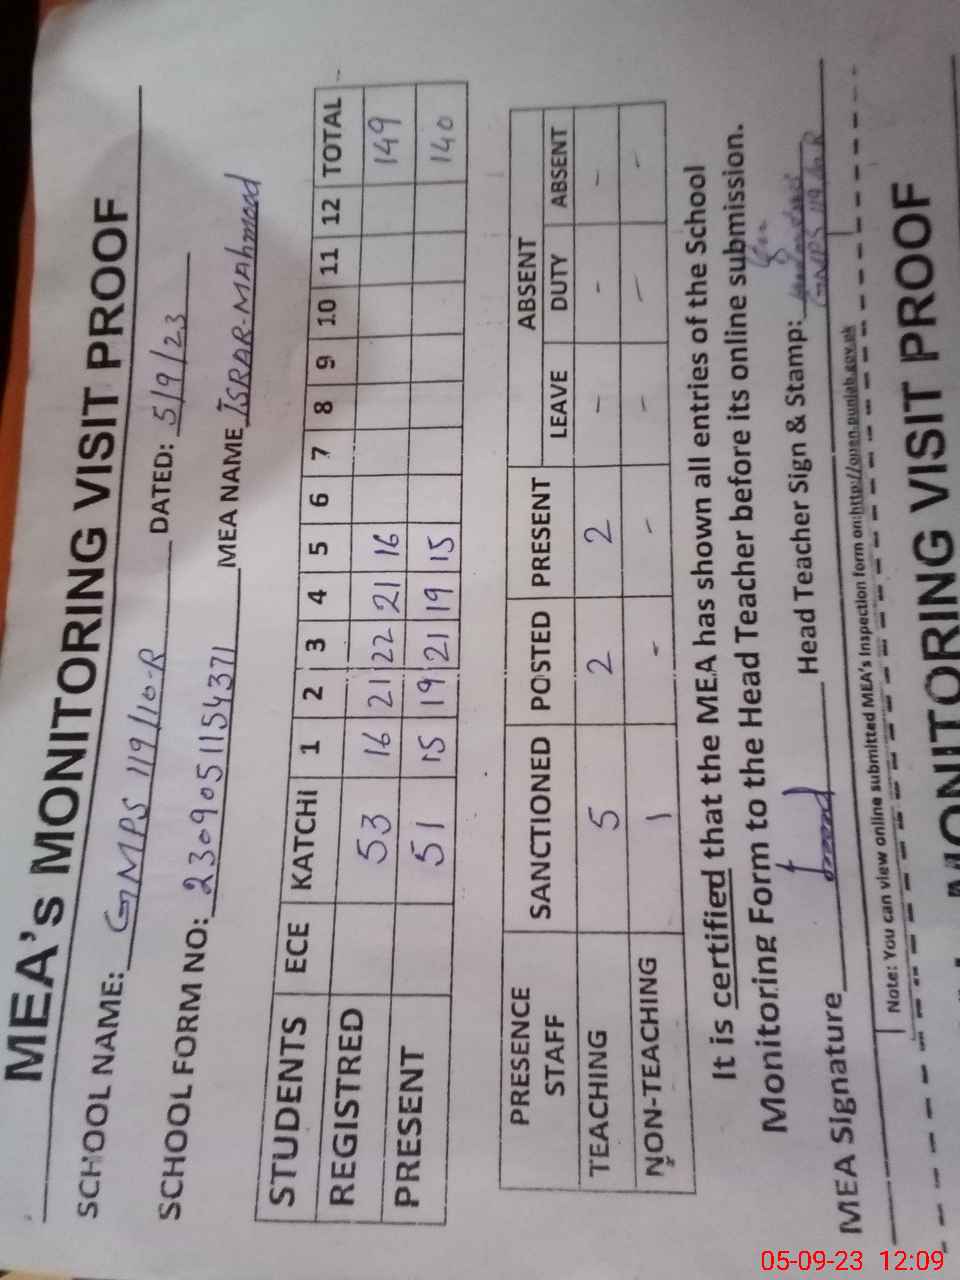 MEA's MONITORING VISIT PROOF
SCHOOL NAME: GMPS 119/10-R DATED: 5/9/23
SCHOOL FORM NO: 2309051154371 MEA NAME ISRAR-MAHmood
STUDENTS ECE KATCHI 1 2 3 4 5 6 7 8 9 10 11 12 TOTAL
REGISTRED 53 16 21 22 21 16 149
PRESENT 51 15 19 21 19 15 140
PRESENCE STAFF SANCTIONED POSTED PRESENT ABSENT
LEAVE DUTY ABSENT
TEACHING 5 2 2 - - -
NON-TEACHING 1 - - - - -
It is certified that the MEA has shown all entries of the School
Monitoring Form to the Head Teacher before its online submission.
MEA Signature Head Teacher Sign & Stamp:
GMPS 119/10R
Note: You can view online submitted MEA's Inspection form on:http://open.punjab.gov.pk
MONITORING VISIT PROOF
05-09-23 12:09